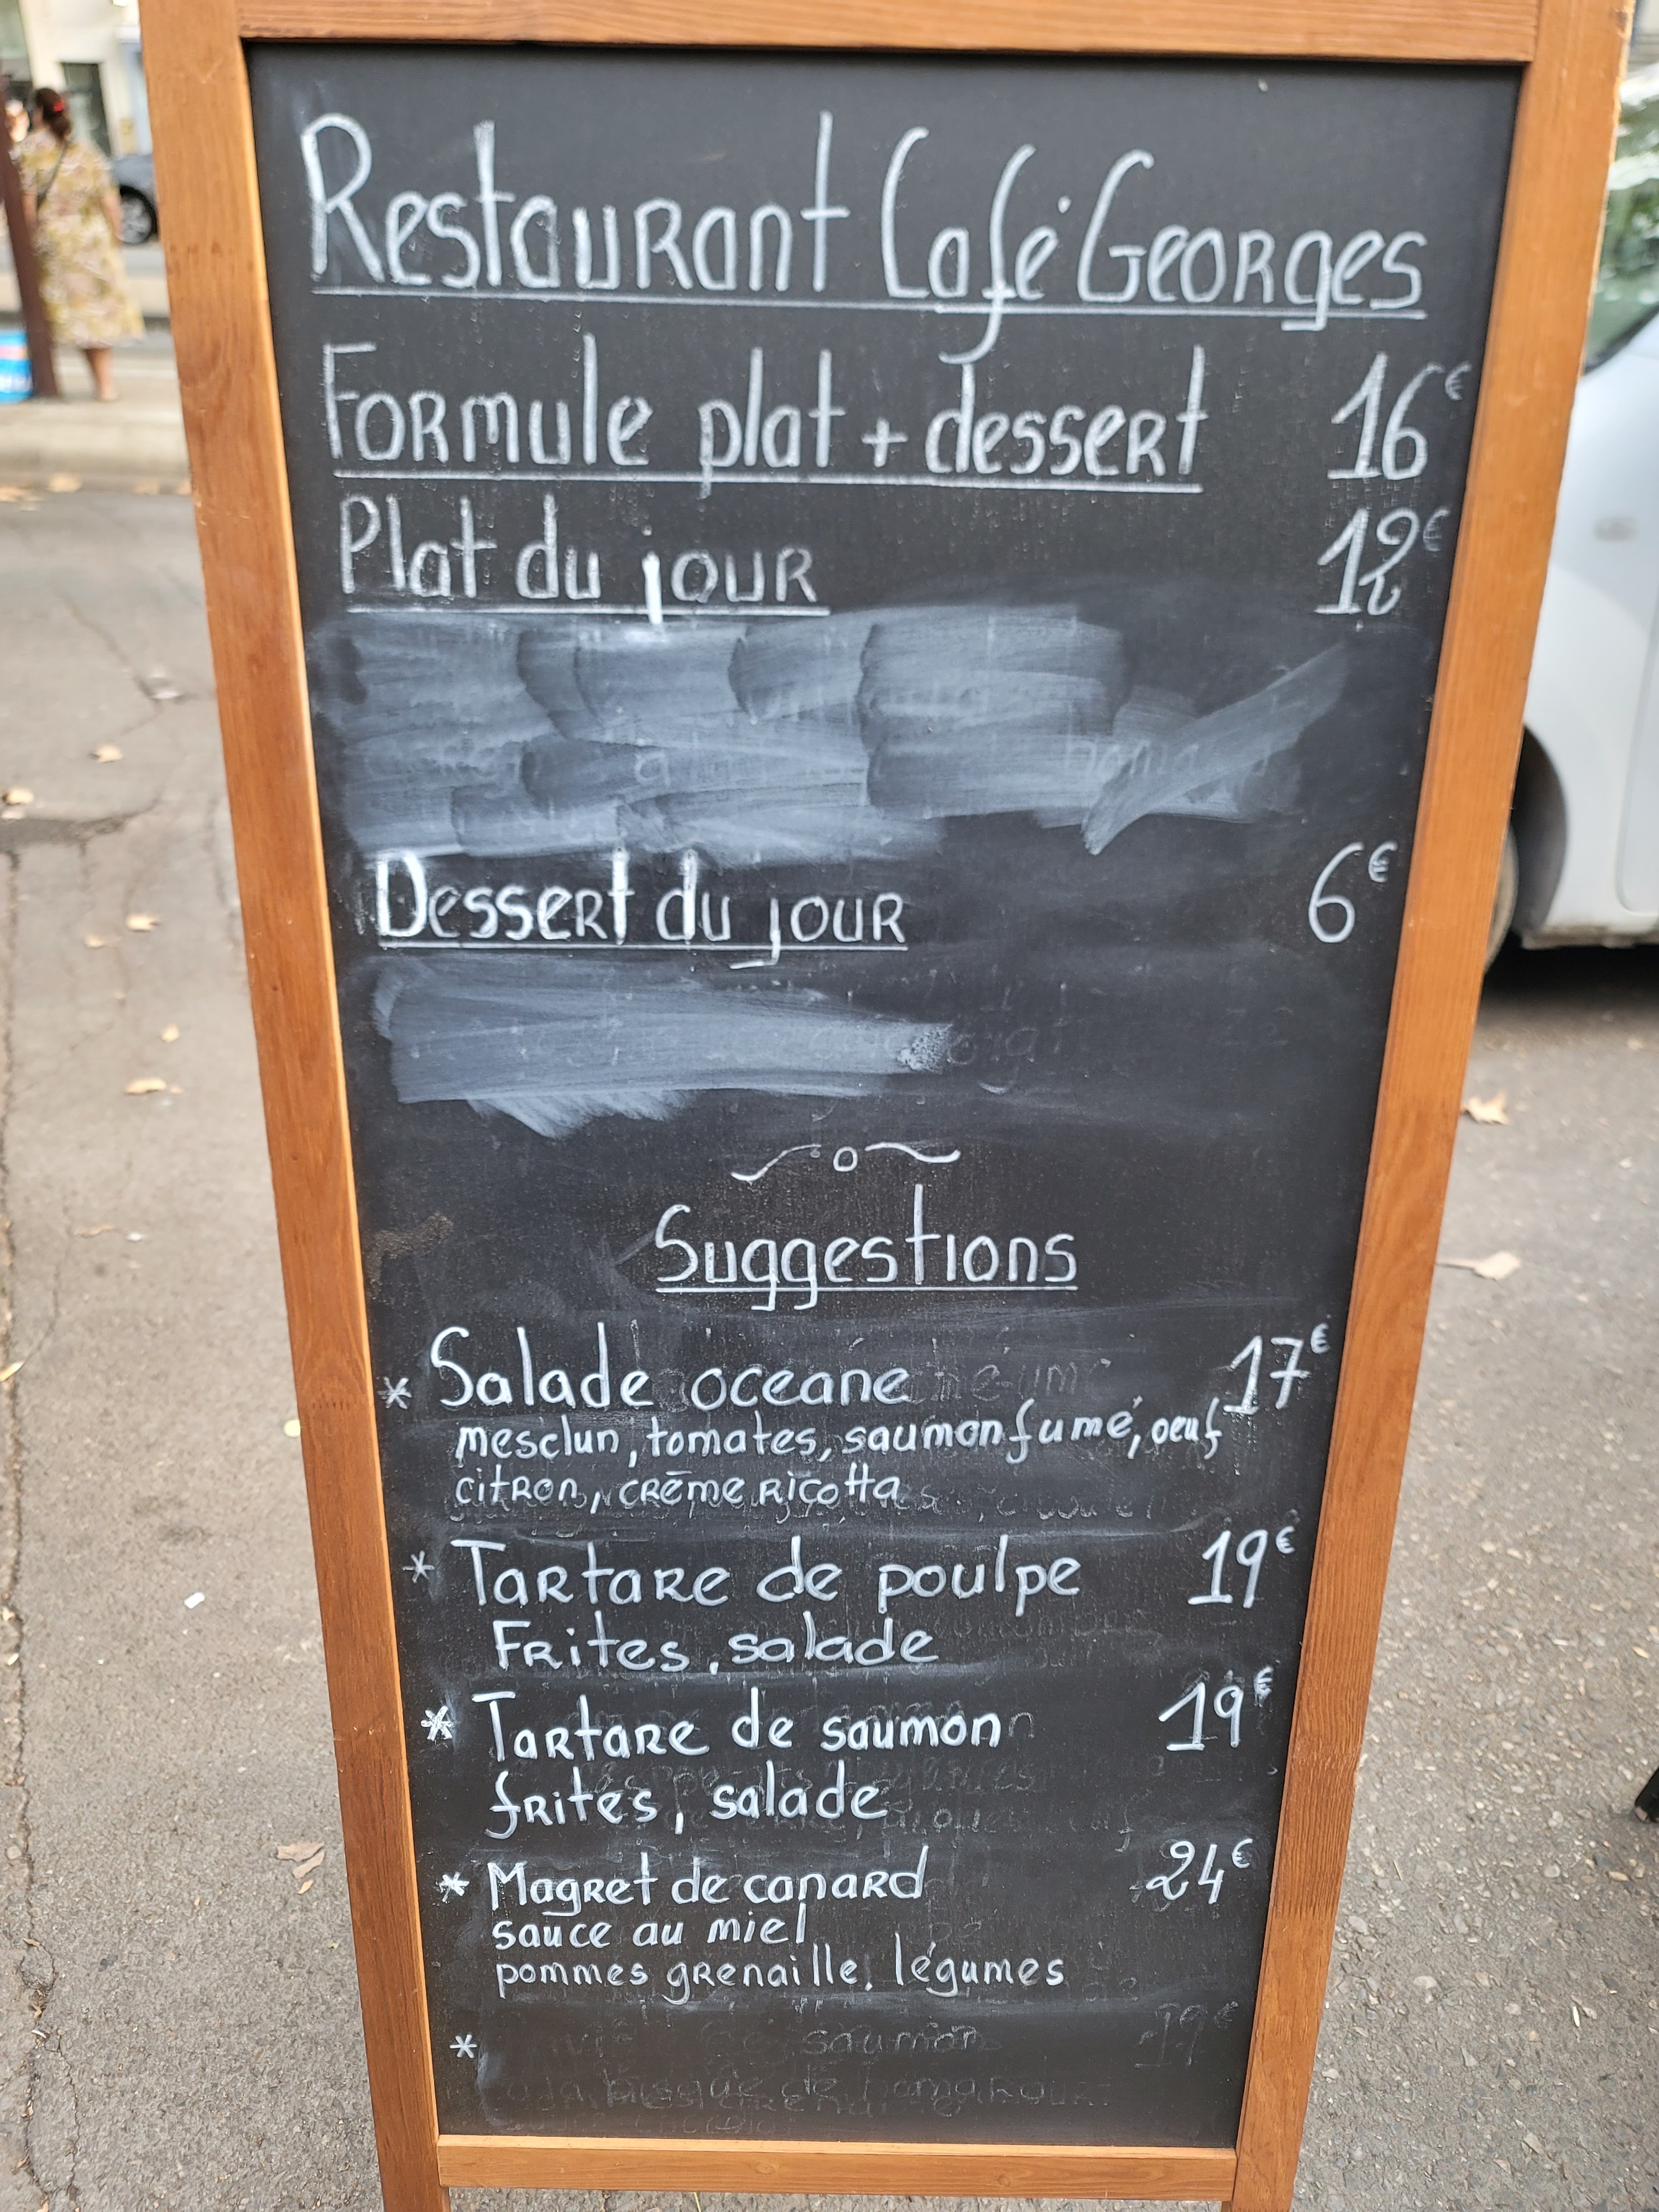 Restaurant Café Georges
Formule plat + dessert 16€
Plat du jour 12€
Dessert du jour 6€
Suggestions
* Salade oceane 17€
mesclun, tomates, saumon fumé, oeuf
citron, crème ricotta
* Tartare de poulpe 19€
Frites, salade
* Tartare de saumon 19€
frites, salade
* Magret de canard 24€
sauce au miel
pommes grenaille, légumes
* saumon 19€